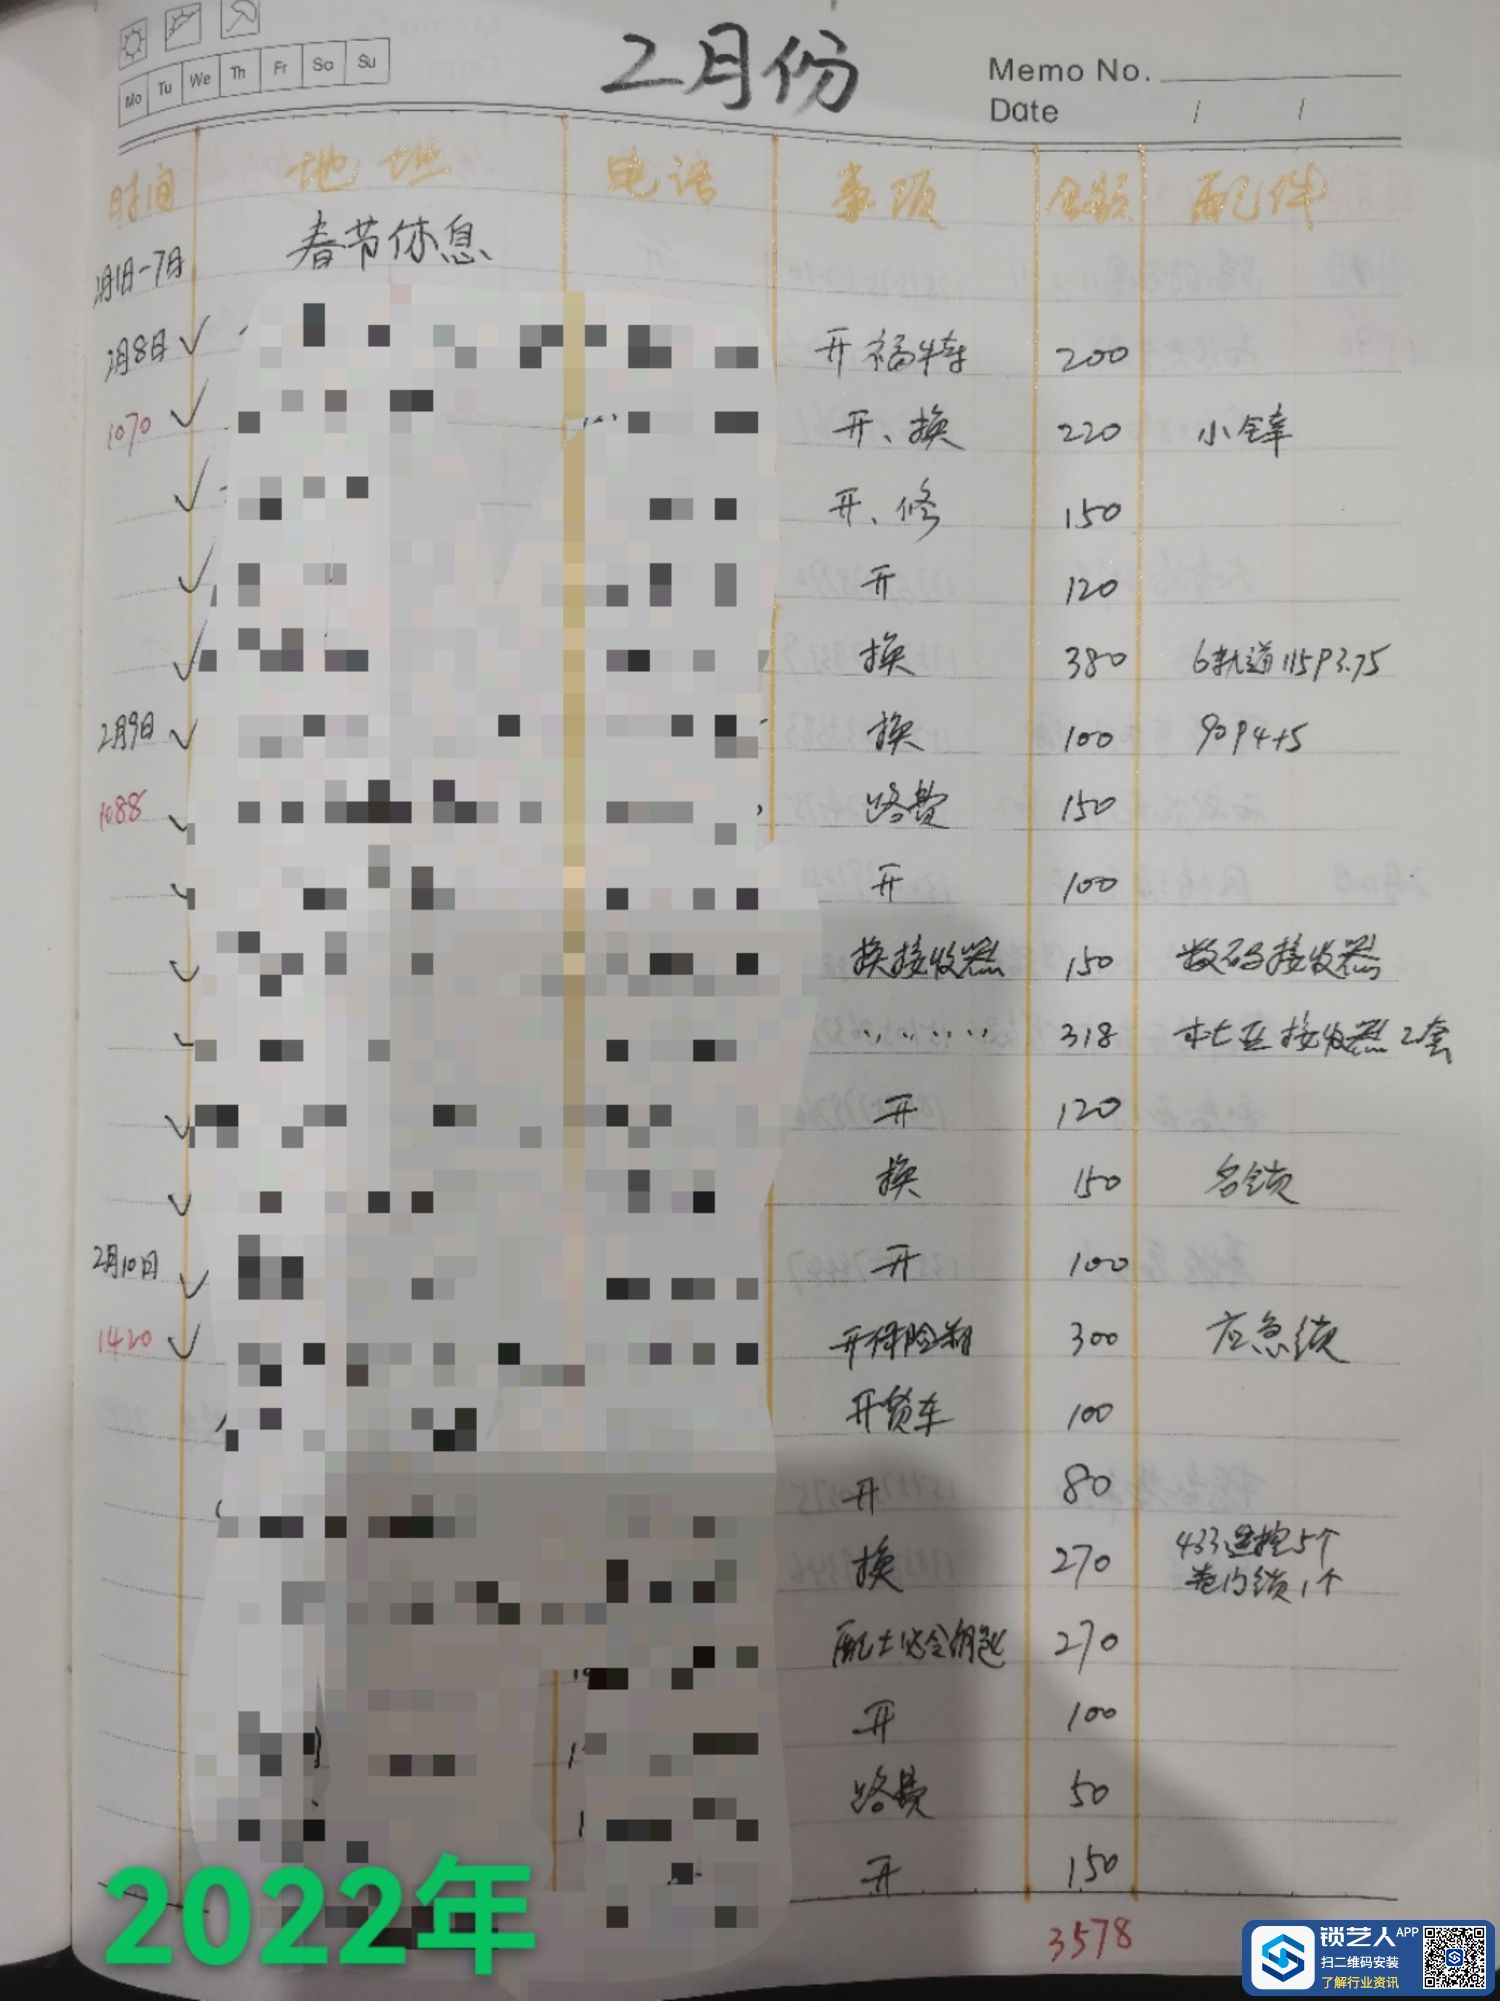 2月份
Memo No.
Date / /
Mo Tu We Th Fr Sa Su
时间 地址 电话 事项 金额 配件
2月1日-7日 春节休息
2月8日 开福特 200
1070 开、换 220 小锌
开、修 150
开 120
换 380 6轨道115P3.75
2月9日 换 100 90P4+5
1088 路费 150
开 100
换接收器 150 数码接收器
........ 318 本七亚接收器2套
开 120
换 150 名锁
2月10日 开 100
1420 开保险箱 300 应急锁
开货车 100
开 80
换 270 433遥控5个
卷门锁1个
配士必令钥匙 270
开 100
路费 50
开 150
3578
2022年
锁艺人APP
扫二维码安装
了解行业资讯